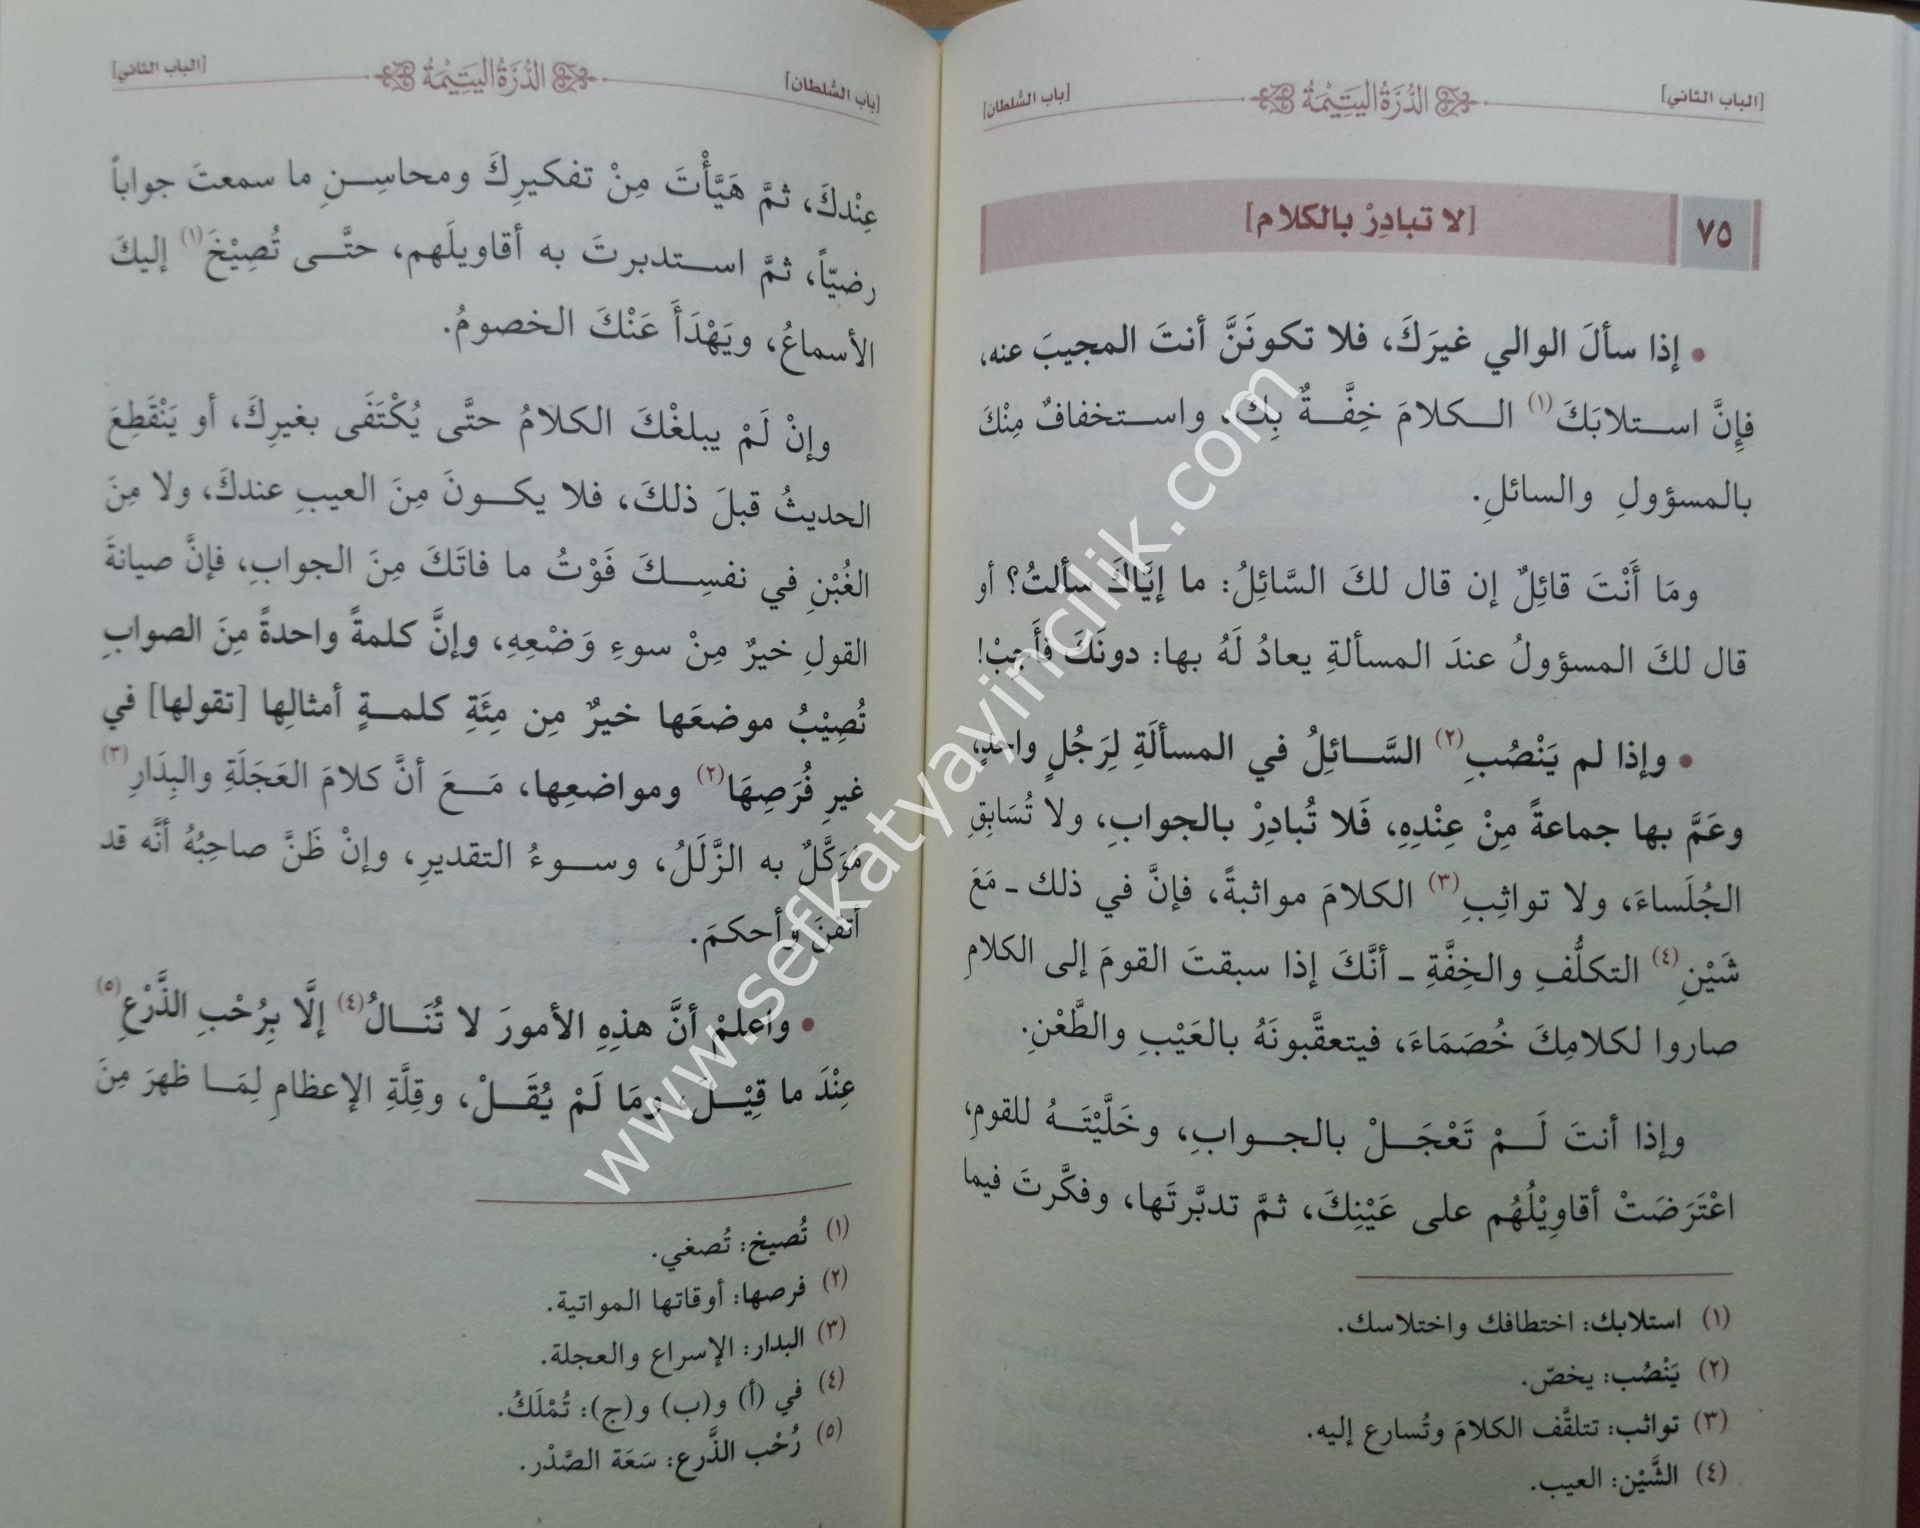 [الباب الثاني]
الدُّرَّةُ اليَتِيْمَةُ
[باب السُّلطان]
٧٥
[لا تبادِرْ بالكلام]
• إذا سألَ الوالي غيرَكَ، فلا تكونَنَّ أنتَ المجيبَ عنه،
فإنَّ استلابَكَ(١) الكلامَ خِفَّةٌ بِكَ، واستخفافٌ مِنْكَ
بالمسؤولِ والسائلِ.
ومَا أَنْتَ قائِلٌ إن قال لكَ السَّائِلُ: ما إيَّاكَ سألتُ؟ أو
قال لكَ المسؤولُ عندَ المسألةِ يعادُ لَهُ بها: دونَكَ فأَجِبْ!
• وإذا لم يَنْصُبِ(٢) السَّائِلُ في المسألَةِ لِرَجُلٍ واحدٍ،
وعَمَّ بها جماعةً مِنْ عِنْدِهِ، فَلا تُبادِرْ بالجوابِ، ولا تُسَابِقِ
الجُلَساءَ، ولا تواثِبِ(٣) الكلامَ مواثبةً، فإنَّ في ذلك ـ مَعَ
شَيْنِ(٤) التكلُّفِ والخِفَّةِ ـ أنَّكَ إذا سبقتَ القومَ إلى الكلامِ
صاروا لكلامِكَ خُصَمَاءَ، فيتعقَّبونَهُ بالعَيْبِ والطَّعْنِ.
وإذا أنتَ لَمْ تَعْجَلْ بالجوابِ، وخَلَّيْتَهُ للقومِ،
اعْتَرَضَتْ أقاوِيْلُهُم على عَيْنِكَ، ثمَّ تدبَّرتَها، وفكَّرتَ فيما
(١) استلابك: اختطافك واختلاسك.
(٢) يَنْصُب: يخصّ.
(٣) تواثب: تتلقَّف الكلامَ وتُسارع إليه.
(٤) الشَّيْن: العيب.
[باب السُّلطان]
الدُّرَّةُ اليَتِيْمَةُ
[الباب الثاني]
عِنْدكَ، ثمَّ هَيَّأْتَ مِنْ تفكيرِكَ ومحاسِنِ ما سمعتَ جواباً
رضيّاً، ثمَّ استدبرتَ به أقاويلَهم، حتَّى تُصِيْخَ(١) إليكَ
الأسماعُ، ويَهْدَأَ عَنْكَ الخصومُ.
وإنْ لَمْ يبلغْكَ الكلامُ حتَّى يُكْتَفَى بغيرِكَ، أو يَنْقَطِعَ
الحديثُ قبلَ ذلكَ، فلا يكونَ مِنَ العيبِ عندكَ، ولا مِنَ
الغُبْنِ في نفسِكَ فَوْتُ ما فاتَكَ مِنَ الجوابِ، فإنَّ صيانةَ
القولِ خيرٌ مِنْ سوءِ وَضْعِهِ، وإنَّ كلمةً واحدةً مِنَ الصوابِ
تُصِيْبُ موضعَها خيرٌ مِن مِئَةِ كلمةٍ أمثالِها [تقولها] في
غيرِ فُرَصِهَا(٢) ومواضعِها، مَعَ أنَّ كلامَ العَجَلَةِ والبِدَارِ(٣)
مُوَكَّلٌ به الزَّلَلُ، وسوءُ التقديرِ، وإنْ ظَنَّ صاحِبُهُ أنَّه قد
أتقنَ وأحكمَ.
• واعلمْ أنَّ هذِهِ الأمورَ لا تُنَالُ(٤) إلَّا بِرُحْبِ الذَّرْعِ(٥)
عِنْدَ ما قِيْلَ، ومَا لَمْ يُقَلْ، وقِلَّةِ الإعظامِ لِمَا ظهرَ مِنَ
(١) تُصيخ: تُصغي.
(٢) فرصها: أوقاتها المواتية.
(٣) البدار: الإسراع والعجلة.
(٤) في (أ) و(ب) و(ج): تُمْلَكُ.
(٥) رُحْب الذَّرع: سَعَة الصَّدْر.
www.sefkatyayincilik.com